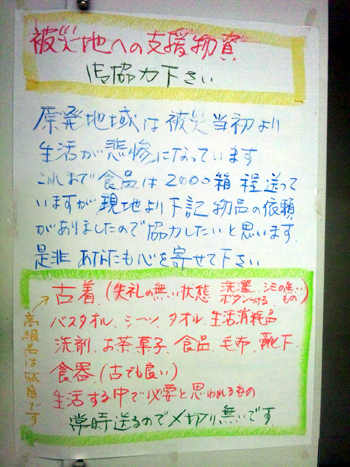 被災地への支援物資
御協力下さい
原発地域は被災当初より
生活が悲惨になっています
これまで食品は2000箱程送って
いますが現地より下記物品の依頼
がありましたので協力したいと思います
是非あなたも心を寄せて下さい
古着(失礼の無い状態 洗濯 シミの無い ボタンつける もの)
バスタオル、シーツ、タオル、生活消耗品
洗剤、お茶、菓子、食品、毛布、靴下
食器(古でも良い)
生活する中で必要と思われるもの
常時送るので〆切り無いです
高級品は駄目です